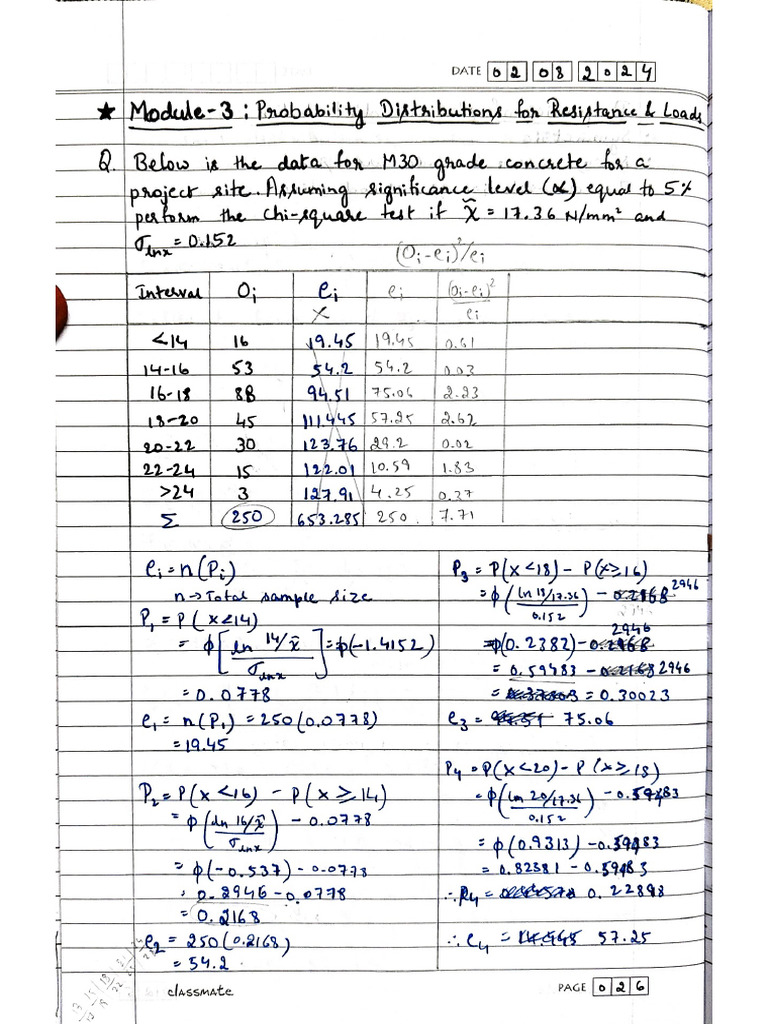 DATE 02 08 2024
★ Module-3 : Probability Distributions for Resistance & Loads
Q. Below is the data for M30 grade concrete for a
project site. Assuming significance level (α) equal to 5%
perform the chi-square test if x̃ = 17.36 N/mm² and
σlnx = 0.152
(Oi-ei)²/ei
Interval Oi ei ei (Oi-ei)²/ei
×
<14 16 19.45 19.45 0.61
14-16 53 54.2 54.2 0.03
16-18 88 94.51 75.06 2.23
18-20 45 111.445 57.25 2.62
20-22 30 123.76 29.2 0.02
22-24 15 122.01 10.59 1.83
>24 3 127.91 4.25 0.37
Σ 250 653.285 250. 7.71
ei = n(Pi)
n→Total sample size
P1 = P(x<14)
= φ[ln 14/x̃ / σlnx] = φ(-1.4152)
= 0.0778
e1 = n(P1) = 250(0.0778)
= 19.45
P2 = P(x<16) - P(x≥14)
= φ(ln 16/x̃ / σlnx) - 0.0778
= φ(-0.537) - 0.0778
= 0.2946 - 0.0778
= 0.2168
e2 = 250(0.2168)
= 54.2
P3 = P(x<18) - P(x≥16)
= φ(ln 18/17.36 / 0.152) - 0.2168 2946
2946
= φ(0.2382) - 0.2168
= 0.59483 - 0.2168 2946
= 0.37803 = 0.30023
e3 = 94.51 75.06
P4 = P(x<20) - P(x≥18)
= φ(ln 20/17.36 / 0.152) - 0.59483
= φ(0.9313) - 0.59483
= 0.82381 - 0.59483
∴ P4 = 0.22898
∴ e4 = 57.25
classmate
PAGE 026